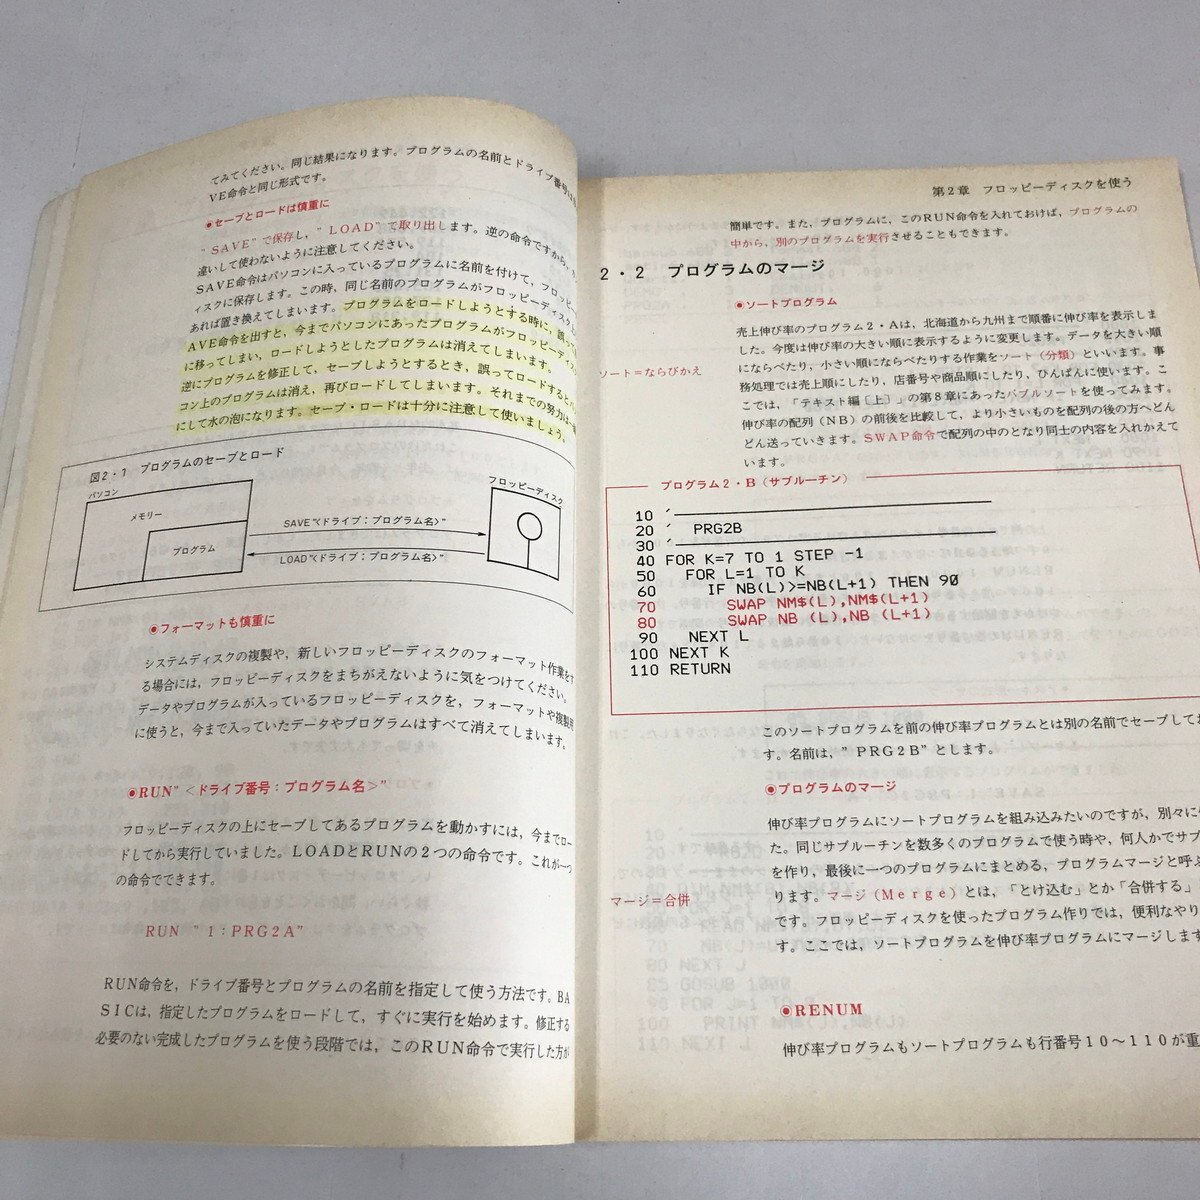 てみてください。同じ結果になります。プログラムの名前とドライブ番号は
VE命令と同じ形式です。
◉セーブとロードは慎重に
"SAVE"で保存し，"LOAD"で取り出します。逆の命令ですから，
違いして使わないように注意してください。
SAVE命令はパソコンに入っているプログラムに名前を付けて，フロッピー
ィスクに保存します。この時，同じ名前のプログラムがフロッピーディスク
あれば置き換えてしまいます。プログラムをロードしようとする時に，誤って
AVE命令を出すと，今までパソコンにあったプログラムがフロッピーディスク
に移ってしまい，ロードしようとしたプログラムは消えてしまいます。
逆にプログラムを修正して，セーブしようとするとき，誤ってロードすると
コン上のプログラムは消え，再びロードしてしまいます。それまでの努力は
にして水の泡になります。セーブ・ロードは十分に注意して使いましょう。
図2・1 プログラムのセーブとロード
パソコン
メモリー
プログラム
SAVE"<ドライブ：プログラム名>"
LOAD"<ドライブ：プログラム名>"
フロッピーディスク
◉フォーマットも慎重に
システムディスクの複製や，新しいフロッピーディスクのフォーマット作業をす
る場合には，フロッピーディスクをまちがえないように気をつけてください。
データやプログラムが入っているフロッピーディスクを，フォーマットや複製用
に使うと，今まで入っていたデータやプログラムはすべて消えてしまいます。
◉RUN"<ドライブ番号：プログラム名>"
フロッピーディスクの上にセーブしてあるプログラムを動かすには，今までロー
ドしてから実行していました。LOADとRUNの2つの命令です。これが一つ
の命令でできます。
RUN "1：PRG2A"
RUN命令を，ドライブ番号とプログラムの名前を指定して使う方法です。BA
SICは，指定したプログラムをロードして，すぐに実行を始めます。修正する
必要のない完成したプログラムを使う段階では，このRUN命令で実行した方が
第2章 フロッピーディスクを使う
簡単です。また，プログラムに，このRUN命令を入れておけば，プログラムの
中から，別のプログラムを実行させることもできます。
2・2 プログラムのマージ
◉ソートプログラム
売上伸び率のプログラム2・Aは，北海道から九州まで順番に伸び率を表示しま
した。今度は伸び率の大きい順に表示するように変更します。データを大きい順
にならべたり，小さい順にならべたりする作業をソート（分類）といいます。事
務処理では売上順にしたり，店番号や商品順にしたり，ひんぱんに使います。こ
こでは，「テキスト編〔上〕」の第8章にあったバブルソートを使ってみます。
伸び率の配列（NB）の前後を比較して，より小さいものを配列の後の方へどん
どん送っていきます。SWAP命令で配列の中のとなり同士の内容を入れかえて
います。
ソート＝ならびかえ
プログラム2・B（サブルーチン）
10 '
20 ' PRG2B
30 '
40 FOR K=7 TO 1 STEP -1
50 FOR L=1 TO K
60 IF NB(L)>=NB(L+1) THEN 90
70 SWAP NM$(L),NM$(L+1)
80 SWAP NB (L),NB (L+1)
90 NEXT L
100 NEXT K
110 RETURN
このソートプログラムを前の伸び率プログラムとは別の名前でセーブして
す。名前は，"PRG2B"とします。
◉プログラムのマージ
伸び率プログラムにソートプログラムを組み込みたいのですが，別々に
た。同じサブルーチンを数多くのプログラムで使う時や，何人かでサブ
を作り，最後に一つのプログラムにまとめる，プログラムマージと呼ぶ
ります。マージ（Merge）とは，「とけ込む」とか「合併する」
です。フロッピーディスクを使ったプログラム作りでは，便利なやり
す。ここでは，ソートプログラムを伸び率プログラムにマージします
マージ＝合併
◉RENUM
伸び率プログラムもソートプログラムも行番号10～110が重